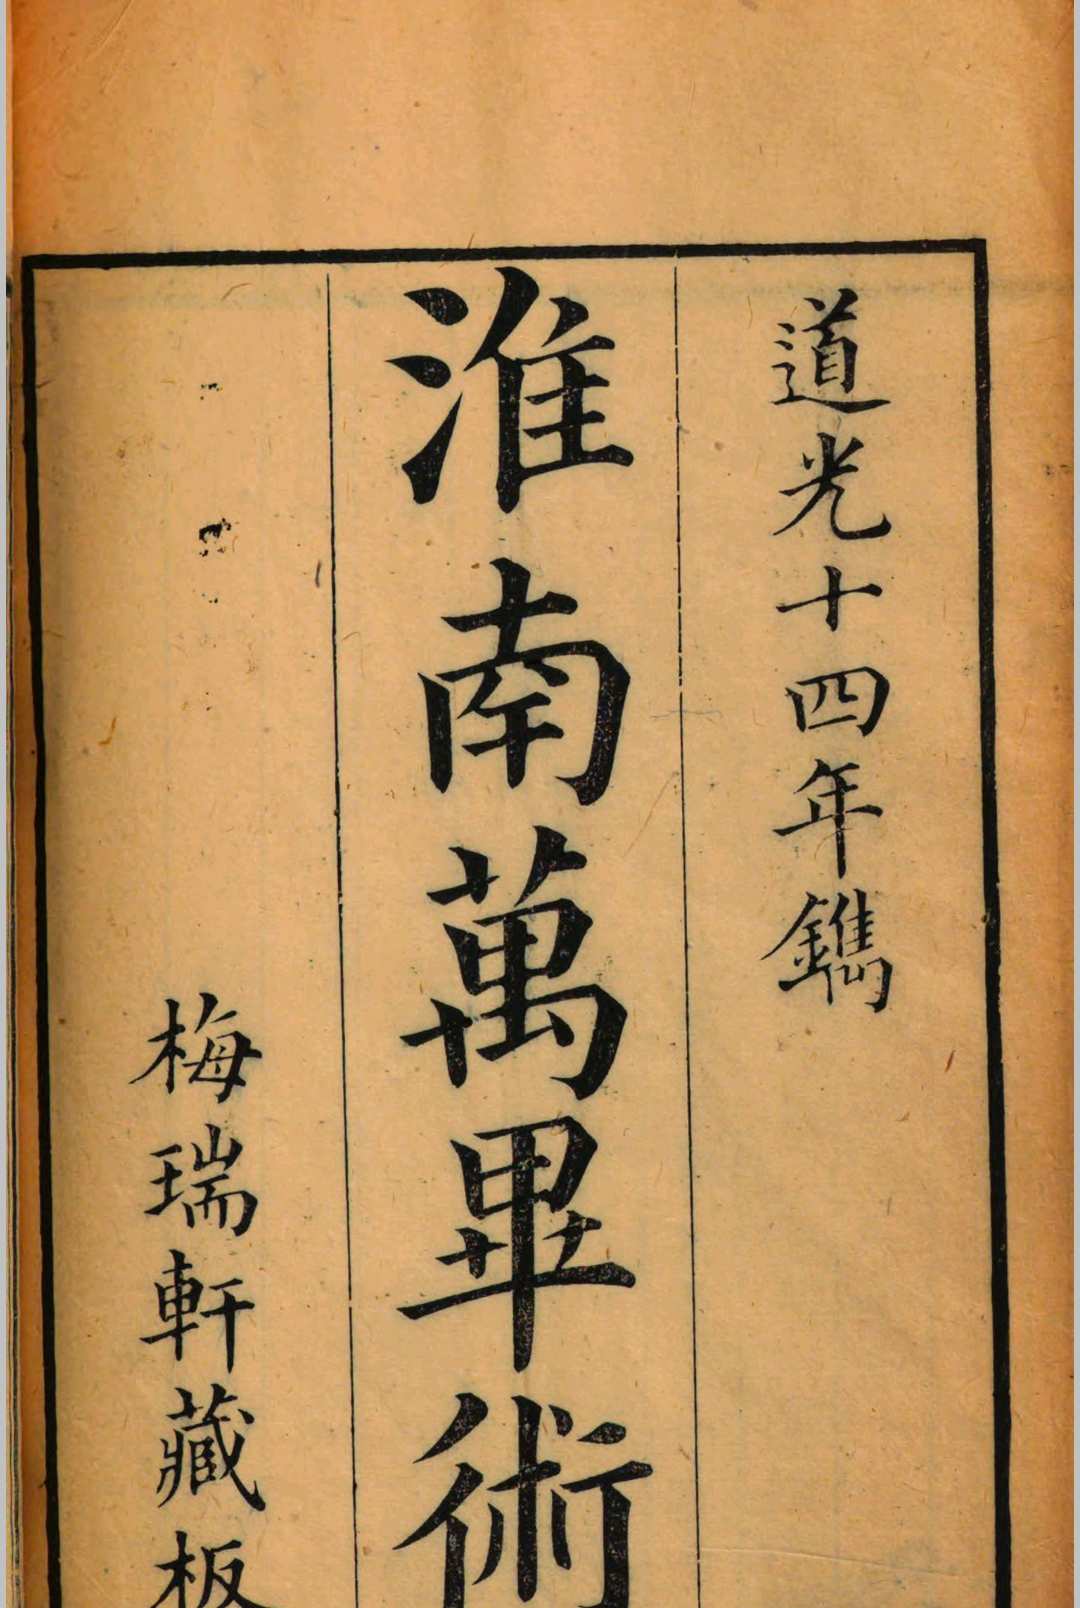 道光十四年鐫
淮南萬畢術
梅瑞軒藏板